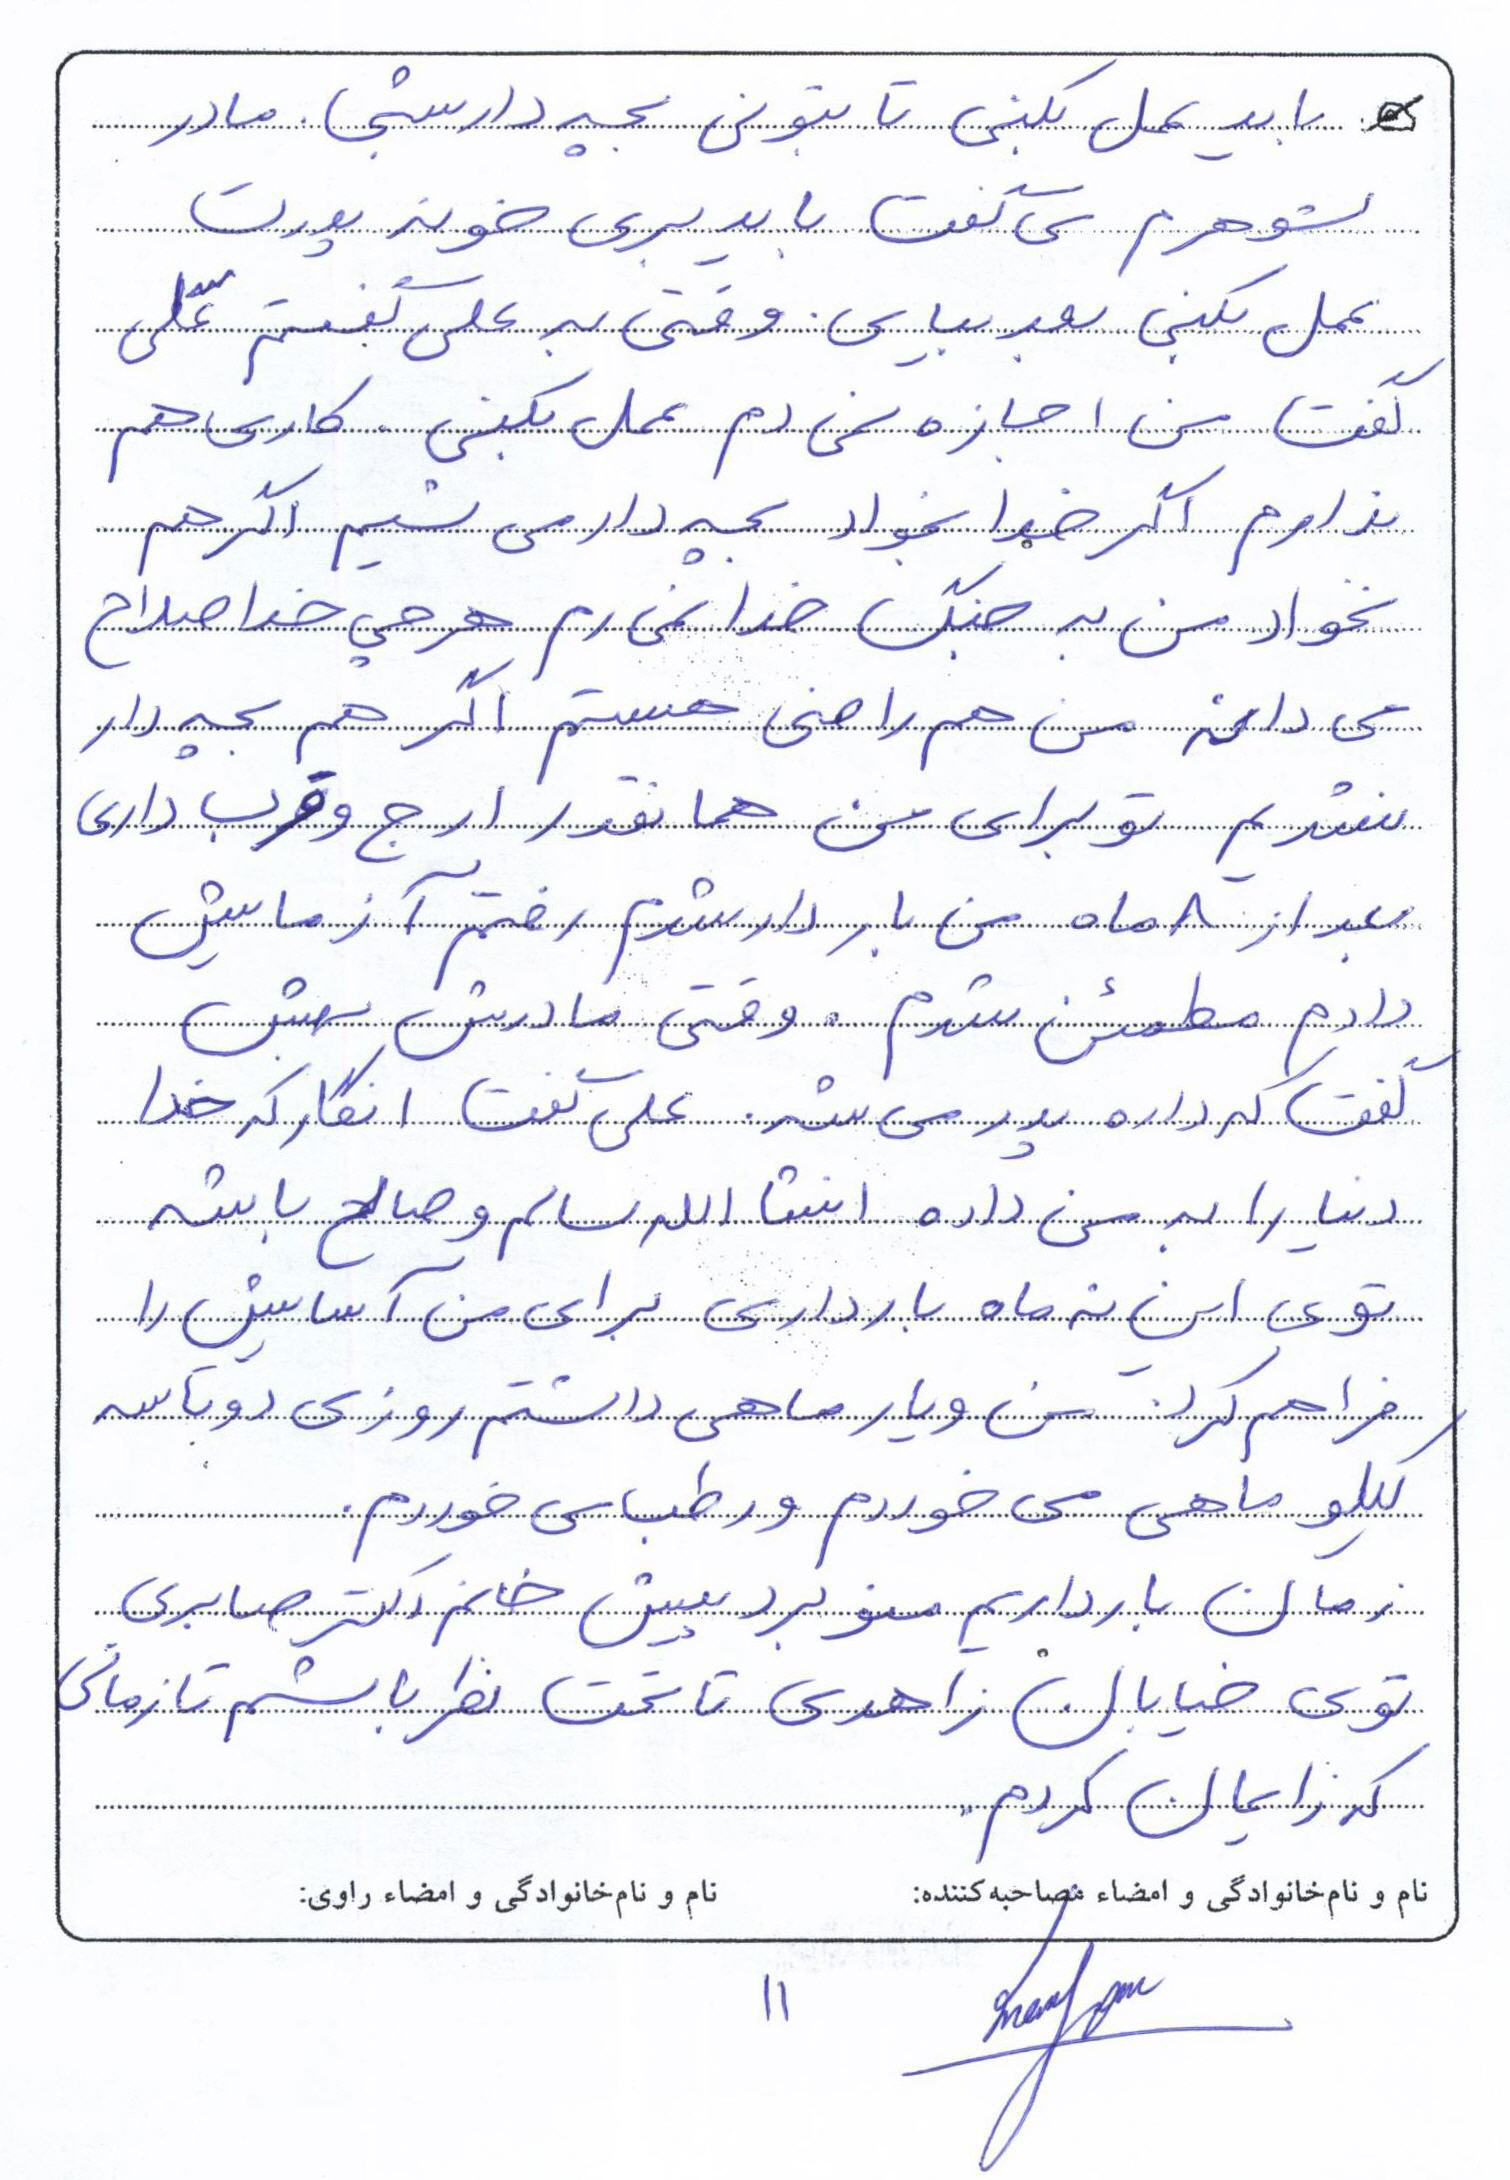 باید عمل بکنی تا بتونی بچه دار بشی. مادر
شوهرم می گفت باید بری خونه پدرت
عمل بکنی بعد بیایی. وقتی به علی گفتم علی
گفت من اجازه نمی دم عمل بکنی. کاری هم
ندارم اگر خدا بخواد بچه دار می شیم اگر هم
نخواد من به جنگ خدا نمی رم هرچی خدا صلاح
می دانه من هم راضی هستم اگر هم بچه دار
نشدیم تو برای من همانقدر ارج و قرب داری
بعد از ۸ ماه من باردار شدم رفتم آزمایش
دادم مطمئن شدم. وقتی مادرش بهش
گفت که داره پدر می شه. علی گفت انگار که خدا
دنیا را به من داده انشا الله سالم و صالح باشه
توی این نه ماه بارداری برای من آسایش را
فراهم کرد. من ویار ماهی داشتم روزی دو تا سه
کیلو ماهی می خوردم و رطب می خوردم.
زمان بارداریم منو برد پیش خانم دکتر صابری
توی خیابان زاهدی تا تحت نظر باشم تا زمانی
که زایمان کردم.
نام و نام‌خانوادگی و امضاء مصاحبه‌کننده: نام و نام‌خانوادگی و امضاء راوی:
۱۱